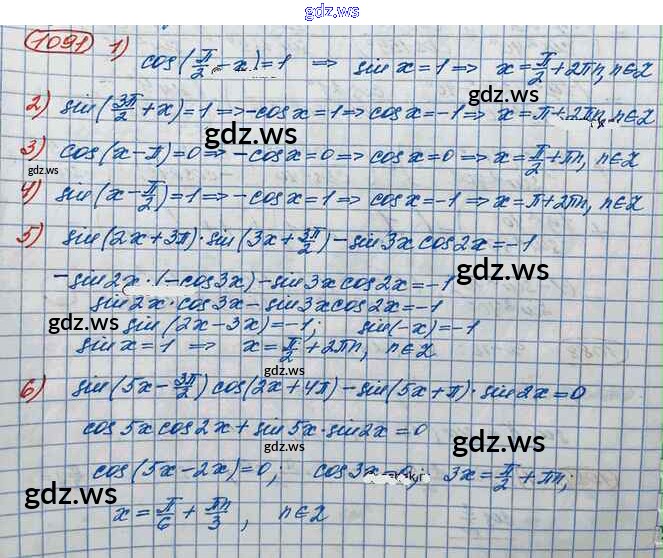 gdz.ws
1091 1) cos(π/2 - x) = 1 ⇒ sin x = 1 ⇒ x = π/2 + 2πn, n∈Z
2) sin(3π/2 + x) = 1 ⇒ -cos x = 1 ⇒ cos x = -1 ⇒ x = π + 2πn, n∈Z
gdz.ws
3) cos(x - π) = 0 ⇒ -cos x = 0 ⇒ cos x = 0 ⇒ x = π/2 + πn, n∈Z
gdz.ws
4) sin(x - π/2) = 1 ⇒ -cos x = 1 ⇒ cos x = -1 ⇒ x = π + 2πn, n∈Z
5) sin(2x + 3π) · sin(3x + 3π/2) - sin 3x cos 2x = -1
gdz.ws
-sin 2x · (-cos 3x) - sin 3x cos 2x = -1
sin 2x · cos 3x - sin 3x cos 2x = -1
gdz.ws
sin(2x - 3x) = -1; sin(-x) = -1
sin x = 1 ⇒ x = π/2 + 2πn, n∈Z
gdz.ws
6) sin(5x - 3π/2) cos(2x + 4π) - sin(5x + π) · sin 2x = 0
cos 5x cos 2x + sin 5x · sin 2x = 0
gdz.ws
cos(5x - 2x) = 0; cos 3x = 0; 3x = π/2 + πn;
gdz.ws
x = π/6 + πn/3, n∈Z
gdz.ws